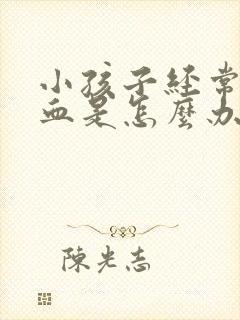 小孩子經常
血是怎麼办
陳光志